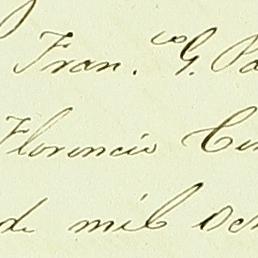 Fran.co G. Pa
Florencio Ce
de mil Och